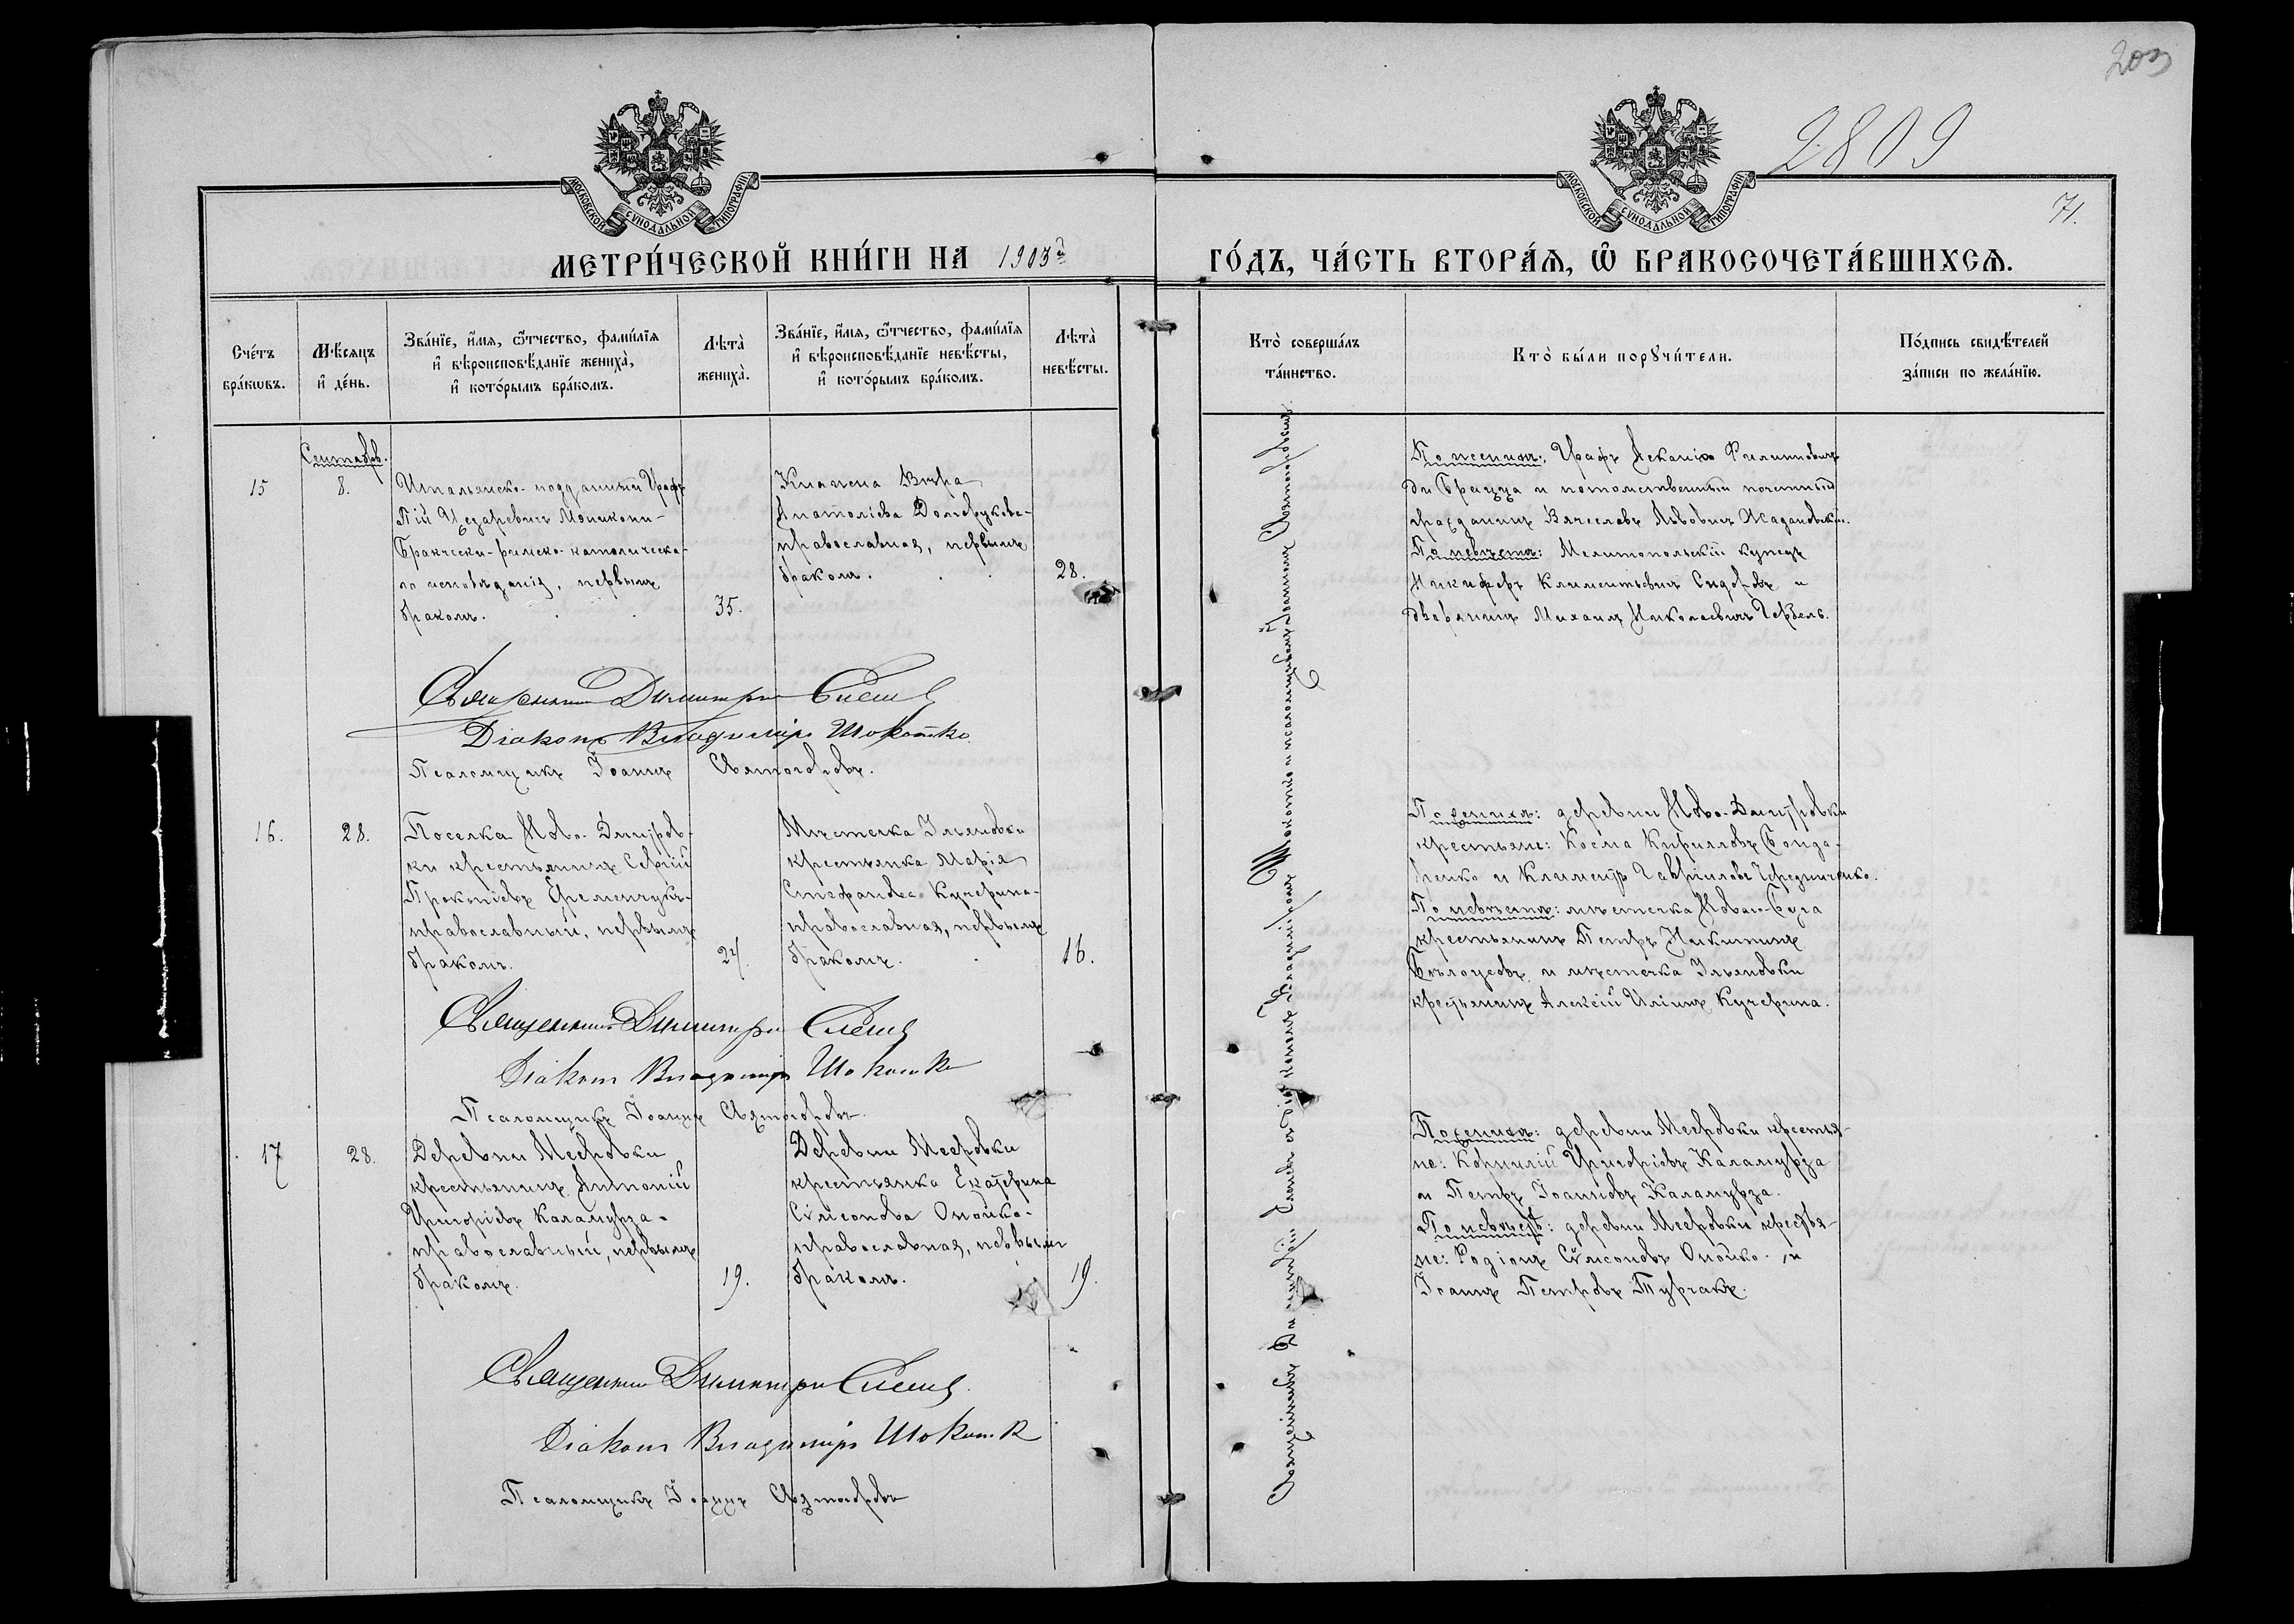 203
2809
71.
МОСКОВСКОЙ СѴНОДАЛЬНОЙ ТИПОГРАФІИ
МОСКОВСКОЙ СѴНОДАЛЬНОЙ ТИПОГРАФІИ
МЕТРИ́ЧЕСКОЙ КНИ́ГИ НА 1903й
ГО́ДЪ, ЧА́СТЬ ВТОРА́Ѧ, Ѽ БРАКОСОЧЕТА́ВШИХСѦ.
Сче́тъ
бра́кѡвъ.
Мѣ́сѧцъ
и҆ де́нь.
Зва́нїе, и҆́мѧ, ѻ҆́тчество, фами́лїѧ
и҆ вѣроисповѣ́данїе женихà,
и҆ кото́рымъ бра́комъ.
Лѣтà
женихà.
Зва́нїе, и҆́мѧ, ѻ҆́тчество, фами́лїѧ
и҆ вѣроисповѣ́данїе невѣ́сты,
и҆ кото́рымъ бра́комъ.
Лѣтà
невѣ́сты.
Ктò соверша́лъ
та́инство.
Ктò бы́ли порꙋчи́тели.
По́дпись свидѣ́телей
за́писи по жела́нїю.
15
Сентябрь.
8.
Итальянско-подданный Графъ
Пій Цезаревичъ
римско-католическа-
го исповѣданія, первымъ
бракомъ.
35.
Княжна Вѣра
Анатоліева Долгорукова-
православная, первымъ
бракомъ.
28.
По женихѣ: Графъ Асканіо Филипповичъ
ди Брацца и потомственный почетный
гражданинъ Вячеславъ Львовичъ Жадановскій.
По невѣстѣ: Мелитопольскій купецъ
Никифоръ Климентьевичъ Сидоровъ и
дворянинъ Михаилъ Николаевичъ
Священникъ Димитрій
Діаконъ Владиміръ Шокотко
Псаломщикъ Іоаннъ Святогоровъ.
16.
28.
Поселка Ново-Дмитров-
ки крестьянинъ Сергій
Прокопіевъ Еременчукъ-
православный, первымъ
бракомъ.
24.
Мѣстечка Ильяновки
крестьянка Марія
Стефанова Кучерина-
православная, первымъ
бракомъ.
16.
По женихѣ: деревни Ново-Дмитровки
крестьяне: Косма Кирилловъ Бонда-
ренко и Климентъ Гавріиловъ Чередниченко.
По невѣстѣ: мѣстечка Новаго-Буга
крестьянинъ Петръ Никитинъ
Бѣлоусовъ и мѣстечка Ильяновки
крестьянинъ Алексій Иліинъ Кучерина.
Священникъ Димитрій
Діаконъ Владиміръ Шокотко
Псаломщикъ Іоаннъ Святогоровъ
17
28.
Деревни Мееровки
крестьянинъ Антоній
Григоріевъ Каламурза-
православный, первымъ
бракомъ.
19.
Деревни Мееровки
крестьянка Екатерина
Сѵмеонова Опойко-
православная, первымъ
бракомъ.
19.
По женихѣ: деревни Мееровки крестья-
не: Корнилій Григоріевъ Каламурза
и Петръ Іоанновъ Каламурза.
По невѣстѣ: деревни Мееровки крестья-
не: Родіонъ Сѵмеоновъ Опойко и
Іоаннъ Петровъ Турчакъ.
Священникъ Димитрій
Діаконъ Владиміръ Шокотко
Псаломщикъ Іоаннъ Святогоровъ
Священникъ Димитрій съ діакономъ Владиміромъ Шокотко и псаломщикомъ Іоанномъ Святогоровымъ.